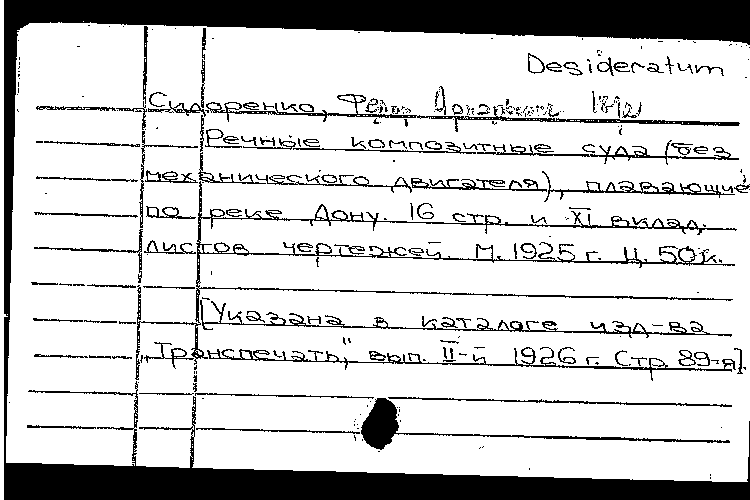 Desideratum
Сидоренко,
Речные композитные суда (без
механического двигателя), плавающие
по реке Дону. 16 стр. и XI вклад.
листов чертежей. М. 1925 г. Ц. 50 к.
[Указана в каталоге изд-ва
„Транспечать," вып. II-й 1926 г. Стр. 89-я].